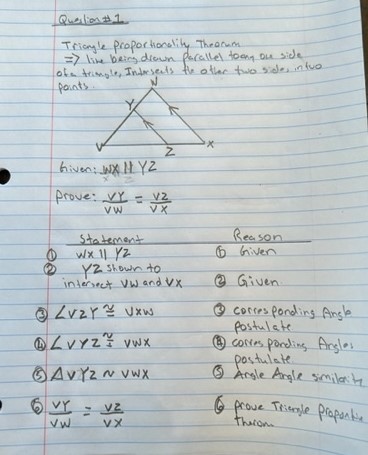 Question #1
Triangle Proportionality Theorum
=> line being drawn parallel to any one side
of a triangle, Intersects the other two sides, in two
points.
W
Y
V
Z
X
Given: WX || YZ
Prove: VY/VW = VZ/VX
Statement Reason
① WX || YZ ① Given
② YZ shown to
intersect VW and VX ② Given
③ ∠VZY ≅ VXW ③ corresponding Angle
Postulate
④ ∠VYZ ≅ VWX ④ corresponding Angles
postulate
⑤ ΔVYZ ~ VWX ⑤ Angle Angle similarity
⑥ VY/VW = VZ/VX ⑥ prove Triangle